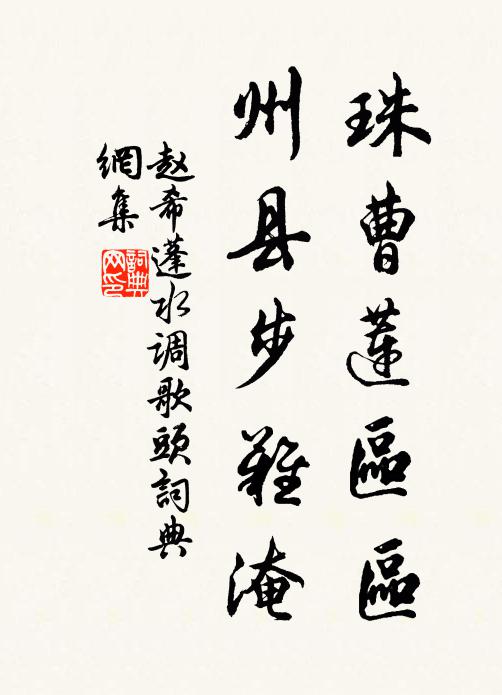 珠曹莲區區
州县步難淹
赵希蓬水调歌頭詞典
網集
詞典
网印